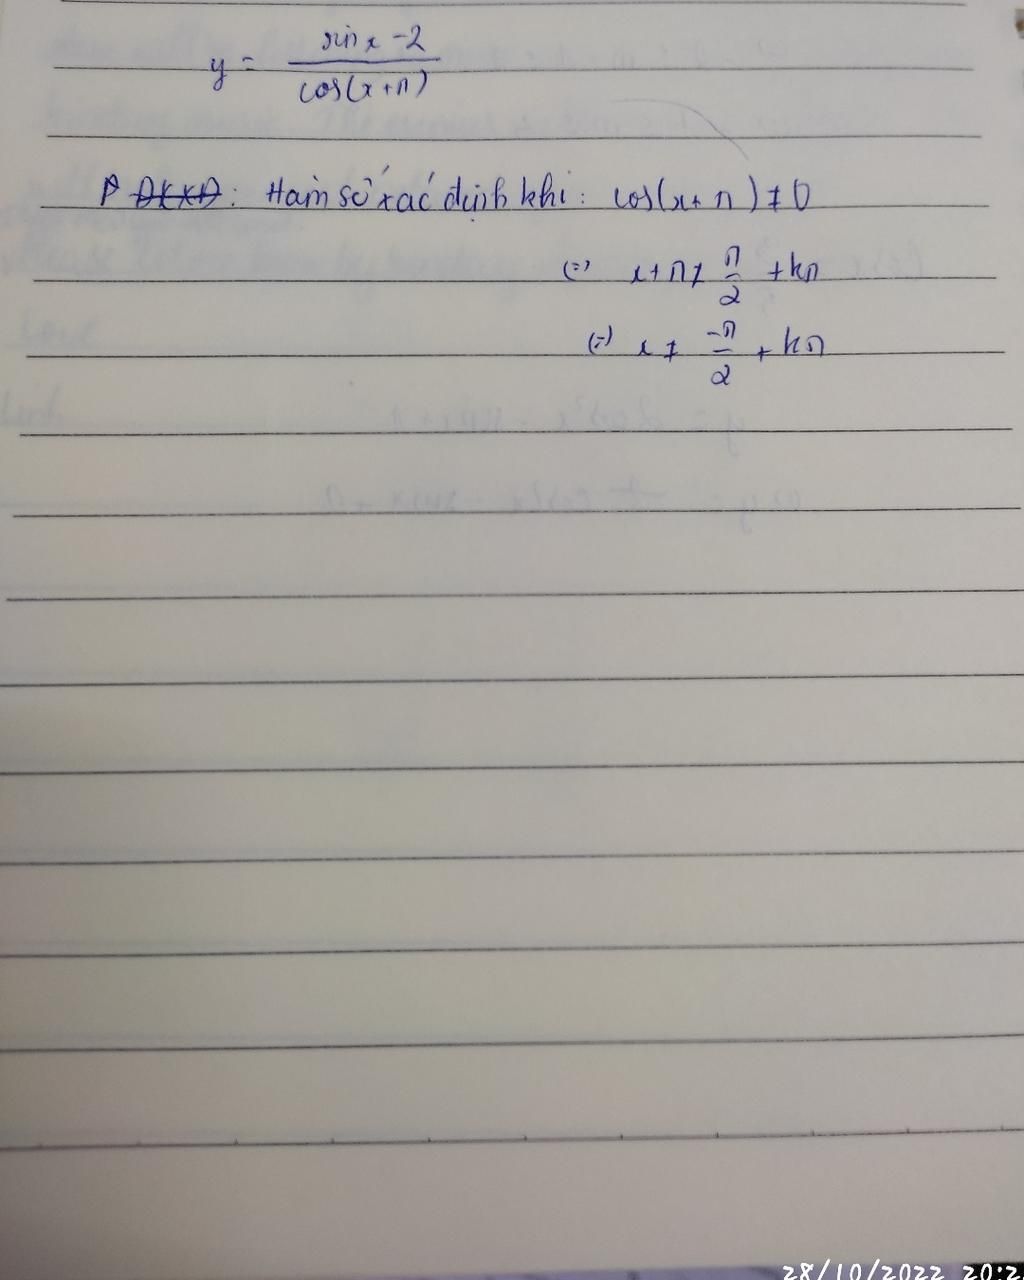 y = sinx - 2 / cos(x+π)
P ĐKXĐ: Hàm số xác định khi: cos(x+π) ≠ 0
(=) x+π ≠ π/2 + kπ
(=) x ≠ -π/2 + kπ
28/10/2022 20:2